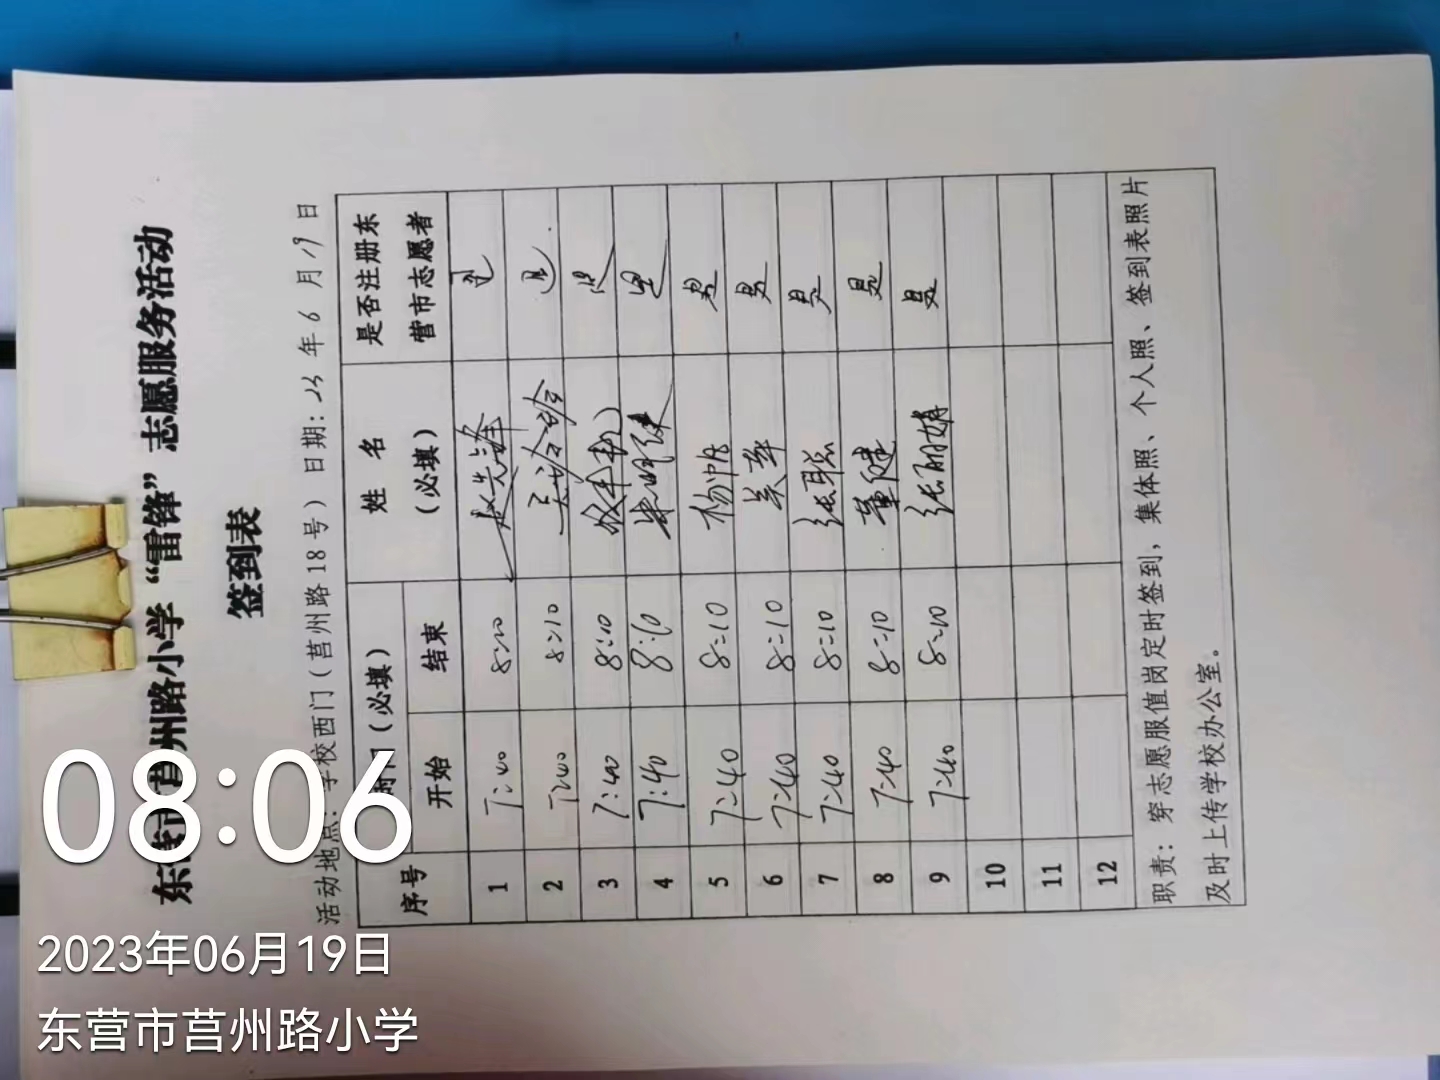 东营市莒州路小学“雷锋”志愿服务活动
签到表
活动地点：学校西门（莒州路18号）日期：23年6月19日
序号 时间（必填） 姓名（必填） 是否注册东营市志愿者
开始 结束
1 7:40 8:10 赵先锋 是
2 7:40 8:10 是
3 7:40 8:10
4 7:40 8:10 是
5 7:40 8:10 杨帆 是
6 7:40 8:10 是
7 7:40 8:10 张聪 是
8 7:40 8:10 董健 是
9 7:40 8:10 张丽娟 是
10
11
12
职责：穿志愿服值岗定时签到，集体照、个人照、签到表照片
及时上传学校办公室。
08:06
2023年06月19日
东营市莒州路小学